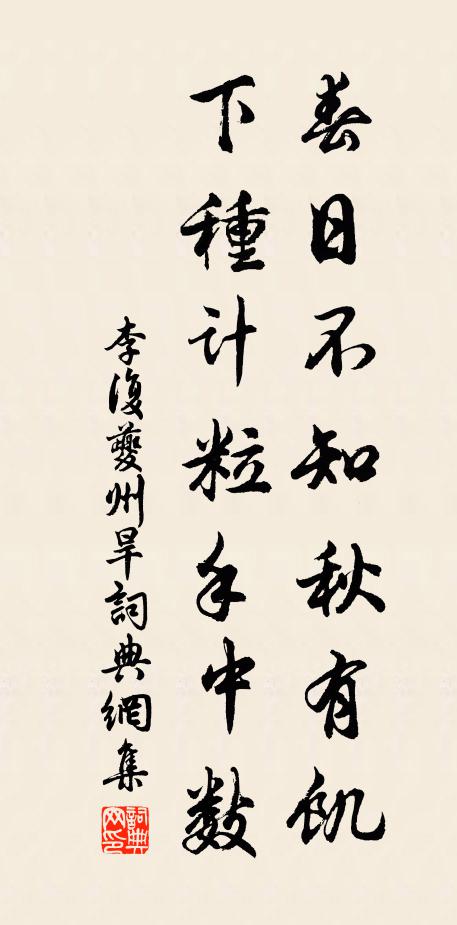 春日不知秋有飢
下種計粒手中數
李復夔州旱詞典網集
詞典网印